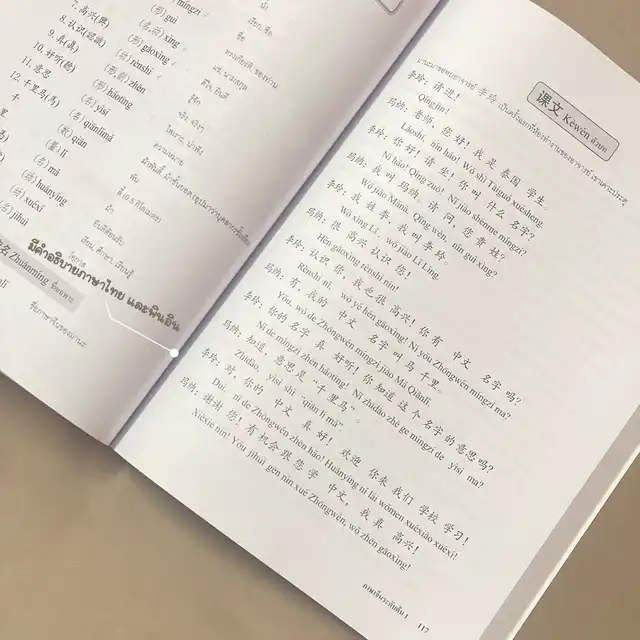 mingzi
7. 高兴(興) (形) gui
8. 认识(認識) (名, xing
9. 真(真) (形) gāoxìng
10. 好听(聽) (动) rènshi
11. 意思 zhēn
12. 千里马(馬) (形) hǎotīng
千 (名) yìsi
里 (名) qiānlǐmǎ
(数) qiān
(量) lǐ
(名) mǎ
(动) huānyíng
(动) xuéxí
(名) jīhuì
名 Zhuānmíng ชื่อเฉพาะ
มีคำอธิบายภาษาไทย และพินอิน
ชื่อภาษาจีนของมานะ
课文 Kèwén ตัวบท
李玲:请进!
Qǐng jìn!
玛纳:老师,您好!我是泰国学生。
Lǎoshī, nín hǎo! Wǒ shì Tàiguó xuésheng.
李玲:你好!请坐!你叫什么名字?
Nǐ hǎo! Qǐng zuò! Nǐ jiào shénme míngzi?
玛纳:我叫玛纳。请问,您贵姓?
Wǒ jiào Mǎnà. Qǐng wèn, nín guì xìng?
李玲:我姓李,我叫李玲。
Wǒ xìng Lǐ, wǒ jiào Lǐ Líng.
玛纳:很高兴认识您!
Hěn gāoxìng rènshi nín!
李玲:认识你,我也很高兴!你有中文名字吗?
Rènshi nǐ, wǒ yě hěn gāoxìng! Nǐ yǒu Zhōngwén míngzi ma?
玛纳:有,我的中文名字叫马千里。
Yǒu, wǒ de Zhōngwén míngzi jiào Mǎ Qiānlǐ.
李玲:你的名字真好听!你知道这个名字的意思吗?
Nǐ de míngzi zhēn hǎotīng! Nǐ zhīdào zhè ge míngzi de yìsi ma?
玛纳:知道,意思是“千里马”。
Zhīdào, yìsi shì “qiān lǐ mǎ”.
李玲:对,你的中文真好!欢迎你来我们学校学习!
Duì, nǐ de Zhōngwén zhēn hǎo! Huānyíng nǐ lái wǒmen xuéxiào xuéxí!
玛纳:谢谢您!有机会跟您学中文,我真高兴!
Xièxie nín! Yǒu jīhuì gēn nín xué Zhōngwén, wǒ zhēn gāoxìng!
ภาษาจีนระดับต้น 1 117